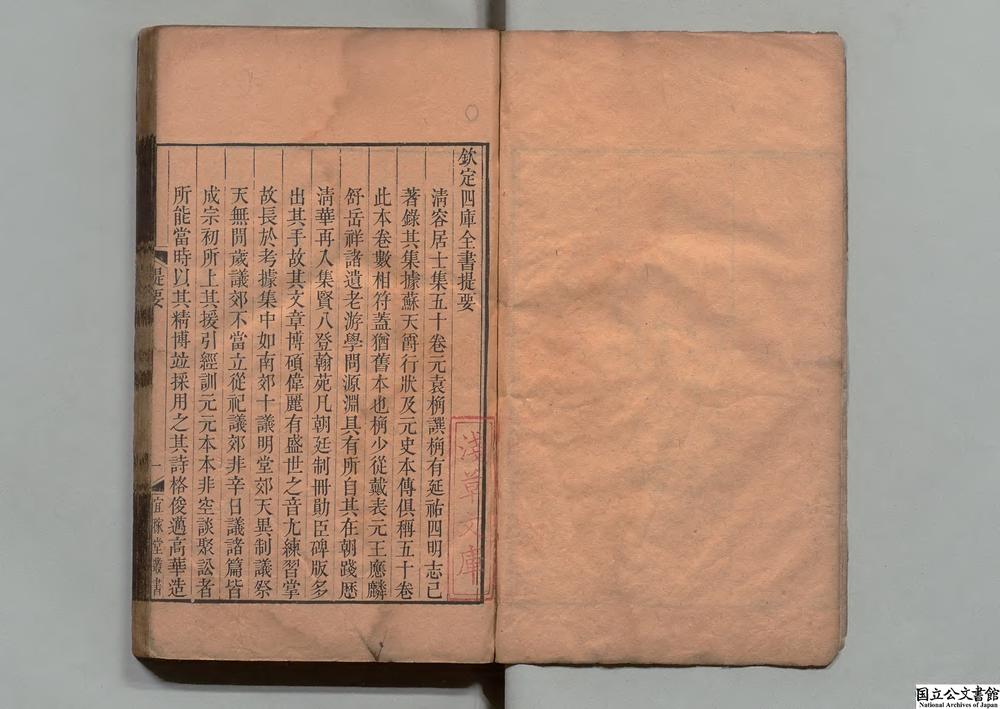 欽定四庫全書提要
清容居士集五十卷元袁桷譔桷有延祐四明志已
著錄其集據蘇天爵行狀及元史本傳俱稱五十卷
此本卷數相符蓋猶舊本也桷少從戴表元王應麟
舒岳祥諸遺老游學問源淵具有所自其在朝踐歷
清華再入集賢八登翰苑凡朝廷制冊勛臣碑版多
出其手故其文章博碩偉麗有盛世之音尤練習掌
故長於考據集中如南郊十議明堂郊天異制議祭
天無閒歲議郊不當立從祀議郊非辛日議諸篇皆
成宗初所上其援引經訓元元本本非空談聚訟者
所能當時以其精博竝採用之其詩格俊邁高華造
提要
一
宜稼堂叢書
淺草文庫
国立公文書館
National Archives of Japan